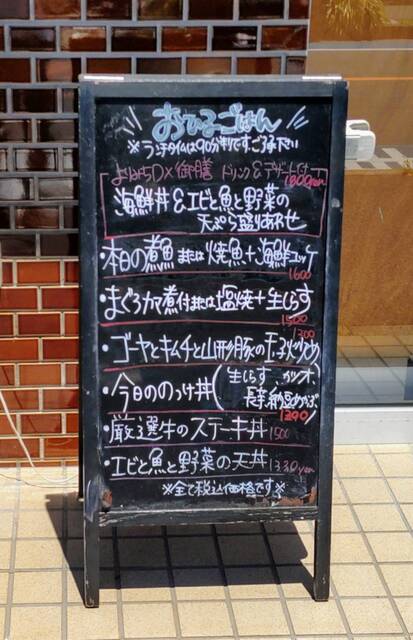 おひるごはん
※ランチタイムは90分制ですご了承下さい
DX御膳 ドリンク&デザート付
1800yen
海鮮丼&エビと魚と野菜の
天ぷら盛りあわせ
・本日の煮魚または焼魚+海鮮ユッケ
1600
・まぐろカマ煮付または塩焼+生しらす
1500
・ゴーヤとキムチと山形豚の玉子炒め
1300
・今日ののっけ丼(生しらす カツオ
長芋、納豆めかぶ)
1390
・厳選牛のステーキ丼 1500
・エビと魚と野菜の天丼 1330yen
※全て税込価格です※